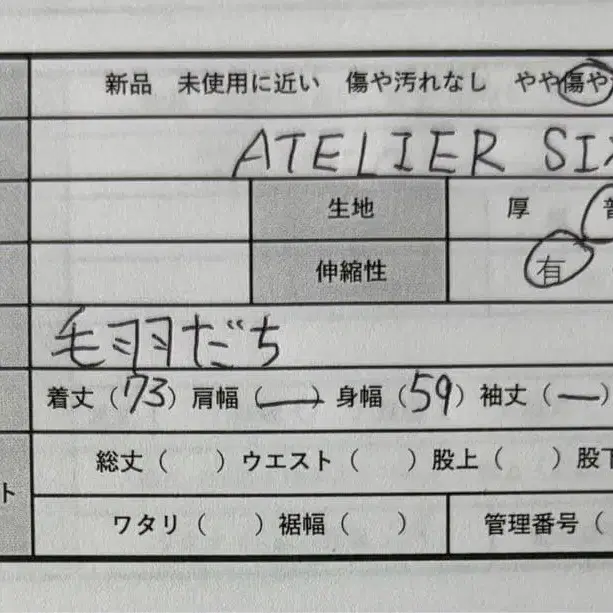 新品 未使用に近い 傷や汚れなし やや傷や
ATELIER SIX
生地 厚 普
伸縮性 有
毛羽だち
着丈（73）肩幅（—）身幅（59）袖丈（—）
総丈（ ）ウエスト（ ）股上（ ）股下
ト
ワタリ（ ）裾幅（ ） 管理番号（